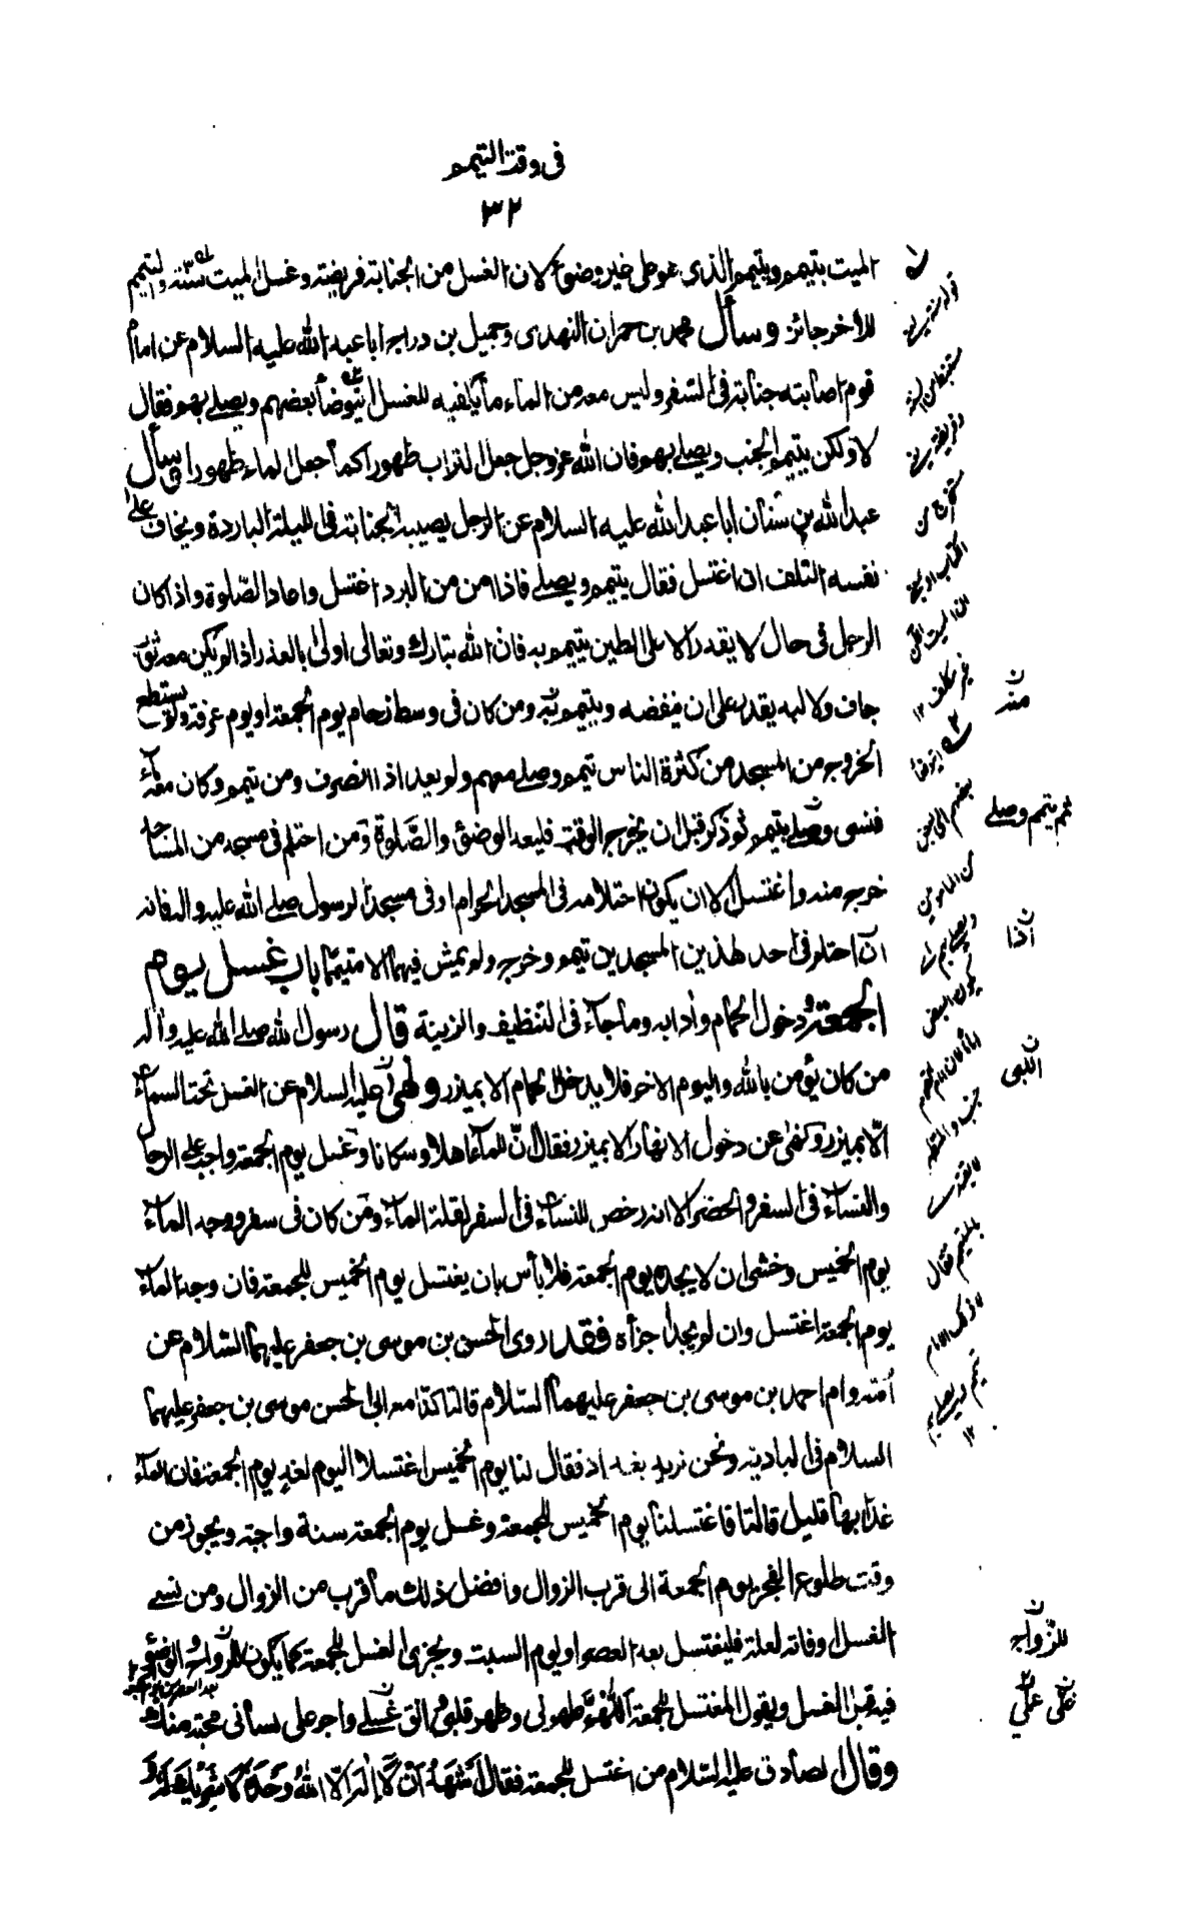 فى وقت التيمم
٣٢
الميت بتيمم ويتيمم الذى هو على غير وضوء لان الغسل من الجنابة فريضة وغسل الميت سنة والتيمم
للاخر جائز وسأل محمد بن حمران النهدى وجميل بن دراج ابا عبد الله عليه السلام عن امام
قوم اصابته جنابة فى السفر وليس معه من الماء ما يكفيه للغسل ايتوضأ بعضهم ويصلى بهم فقال
لا ولكن يتيمم الجنب ويصلى بهم فان الله عز وجل جعل التراب طهورا كما جعل الماء طهورا وسأل
عبد الله بن سنان ابا عبد الله عليه السلام عن الرجل يصيبه الجنابة فى الليلة الباردة ويخاف على
نفسه التلف ان اغتسل فقال يتيمم ويصلى فاذا امن من البرد اغتسل واعاد الصلوة واذا كان
الرجل فى حال لا يقدر الا على الطين يتيمم به فان الله تبارك وتعالى اولى بالعذر اذا لم يكن معه ثوب
جاف ولا لبد يقدر على ان ينفضه ويتيمم به ومن كان فى وسط زحام يوم الجمعة او يوم عرفة ولم يستطع
الخروج من المسجد من كثرة الناس تيمم وصلى معهم ولم يعد اذا انصرف ومن تيمم وكان معه ماء
فنسى وصلى بتيمم ثم ذكر قبل ان يخرج الوقت فليعد الوضوء والصلوة ومن احتلم فى مسجد من المساجد
خرج منه واغتسل الا ان يكون احتلامه فى المسجد الحرام او فى مسجد الرسول صلى الله عليه واله فانه
ان احتلم فى احد هذين المسجدين تيمم وخرج ولم يمش فيهما الا متيمما باب غسل يوم
الجمعة ودخول الحمام وآدابه وما جاء فى التنظيف والزينة قال رسول الله صلى الله عليه وآله
من كان يؤمن بالله واليوم الاخر فلا يدخل الحمام الا بميزر ونهى عليه السلام عن الغسل تحت السماء
الا بميزر ونهى عن دخول الانهار الا بميزر فقال ان للماء اهلا وسكانا وغسل يوم الجمعة واجب على الرجال
والنساء فى السفر والحضر الا انه رخص للنساء فى السفر لقلة الماء ومن كان فى سفر ووجد الماء
يوم الخميس وخشى ان لا يجده يوم الجمعة فلا بأس بان يغتسل يوم الخميس للجمعة فان وجد الماء
يوم الجمعة اغتسل وان لم يجد اجزأه فقد روى الحسن بن موسى بن جعفر عليهما السلام عن
امه وام احمد بن موسى بن جعفر عليهما السلام قالتا كنا مع ابى الحسن موسى بن جعفر عليهما
السلام فى البادية ونحن نريد بغداد فقال لنا يوم الخميس اغتسلا اليوم لغد يوم الجمعة فان الماء
غدا بها قليل قالتا فاغتسلنا يوم الخميس للجمعة وغسل يوم الجمعة سنة واجبة ويجوز من
وقت طلوع الفجر يوم الجمعة الى قرب الزوال وافضل ذلك ما قرب من الزوال ومن نسى
الغسل او فاته لعلة فليغتسل بعد العصر او يوم السبت ويجزى الغسل للجمعة كما يكون للرواح والوضوء
فيه قبل الغسل ويقول المغتسل للجمعة اللهم طهرنى وطهر قلبى وانق غسلى واجر على لسانى محبة منك
وقال الصادق عليه السلام من اغتسل للجمعة فقال أشهد أن لا إله الا الله وحده لا شريك له و
منه
ثم يتيمم وصلى
اذا
النبى
للزواج